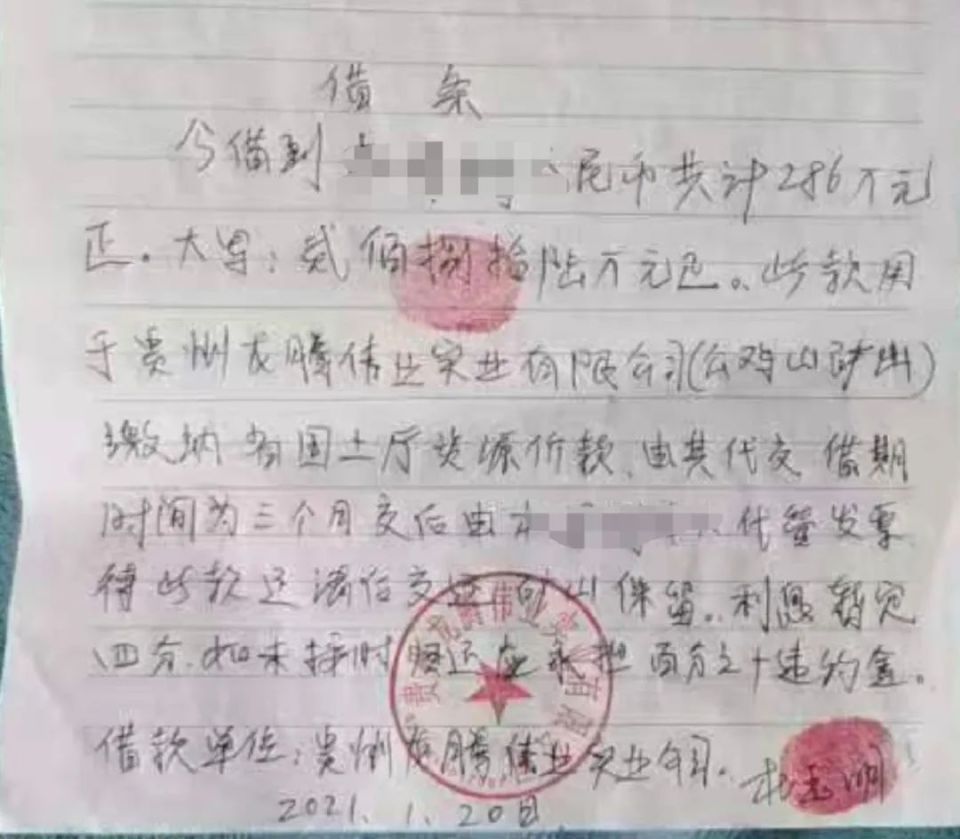 借条
今借到 民币共计286万元
正。大写：贰佰捌拾陆万元正。此款用
于贵州龙腾伟业实业有限公司(公鸡山矿山)
缴纳省国土厅资源价款，由其代交，借期
时间为三个月交后由 代管发票
待此款还清后交 保留。利息暂定
四分，如未按时归还应承担百分之十违约金。
借款单位：贵州龙腾伟业实业公司。
2021.1.20日